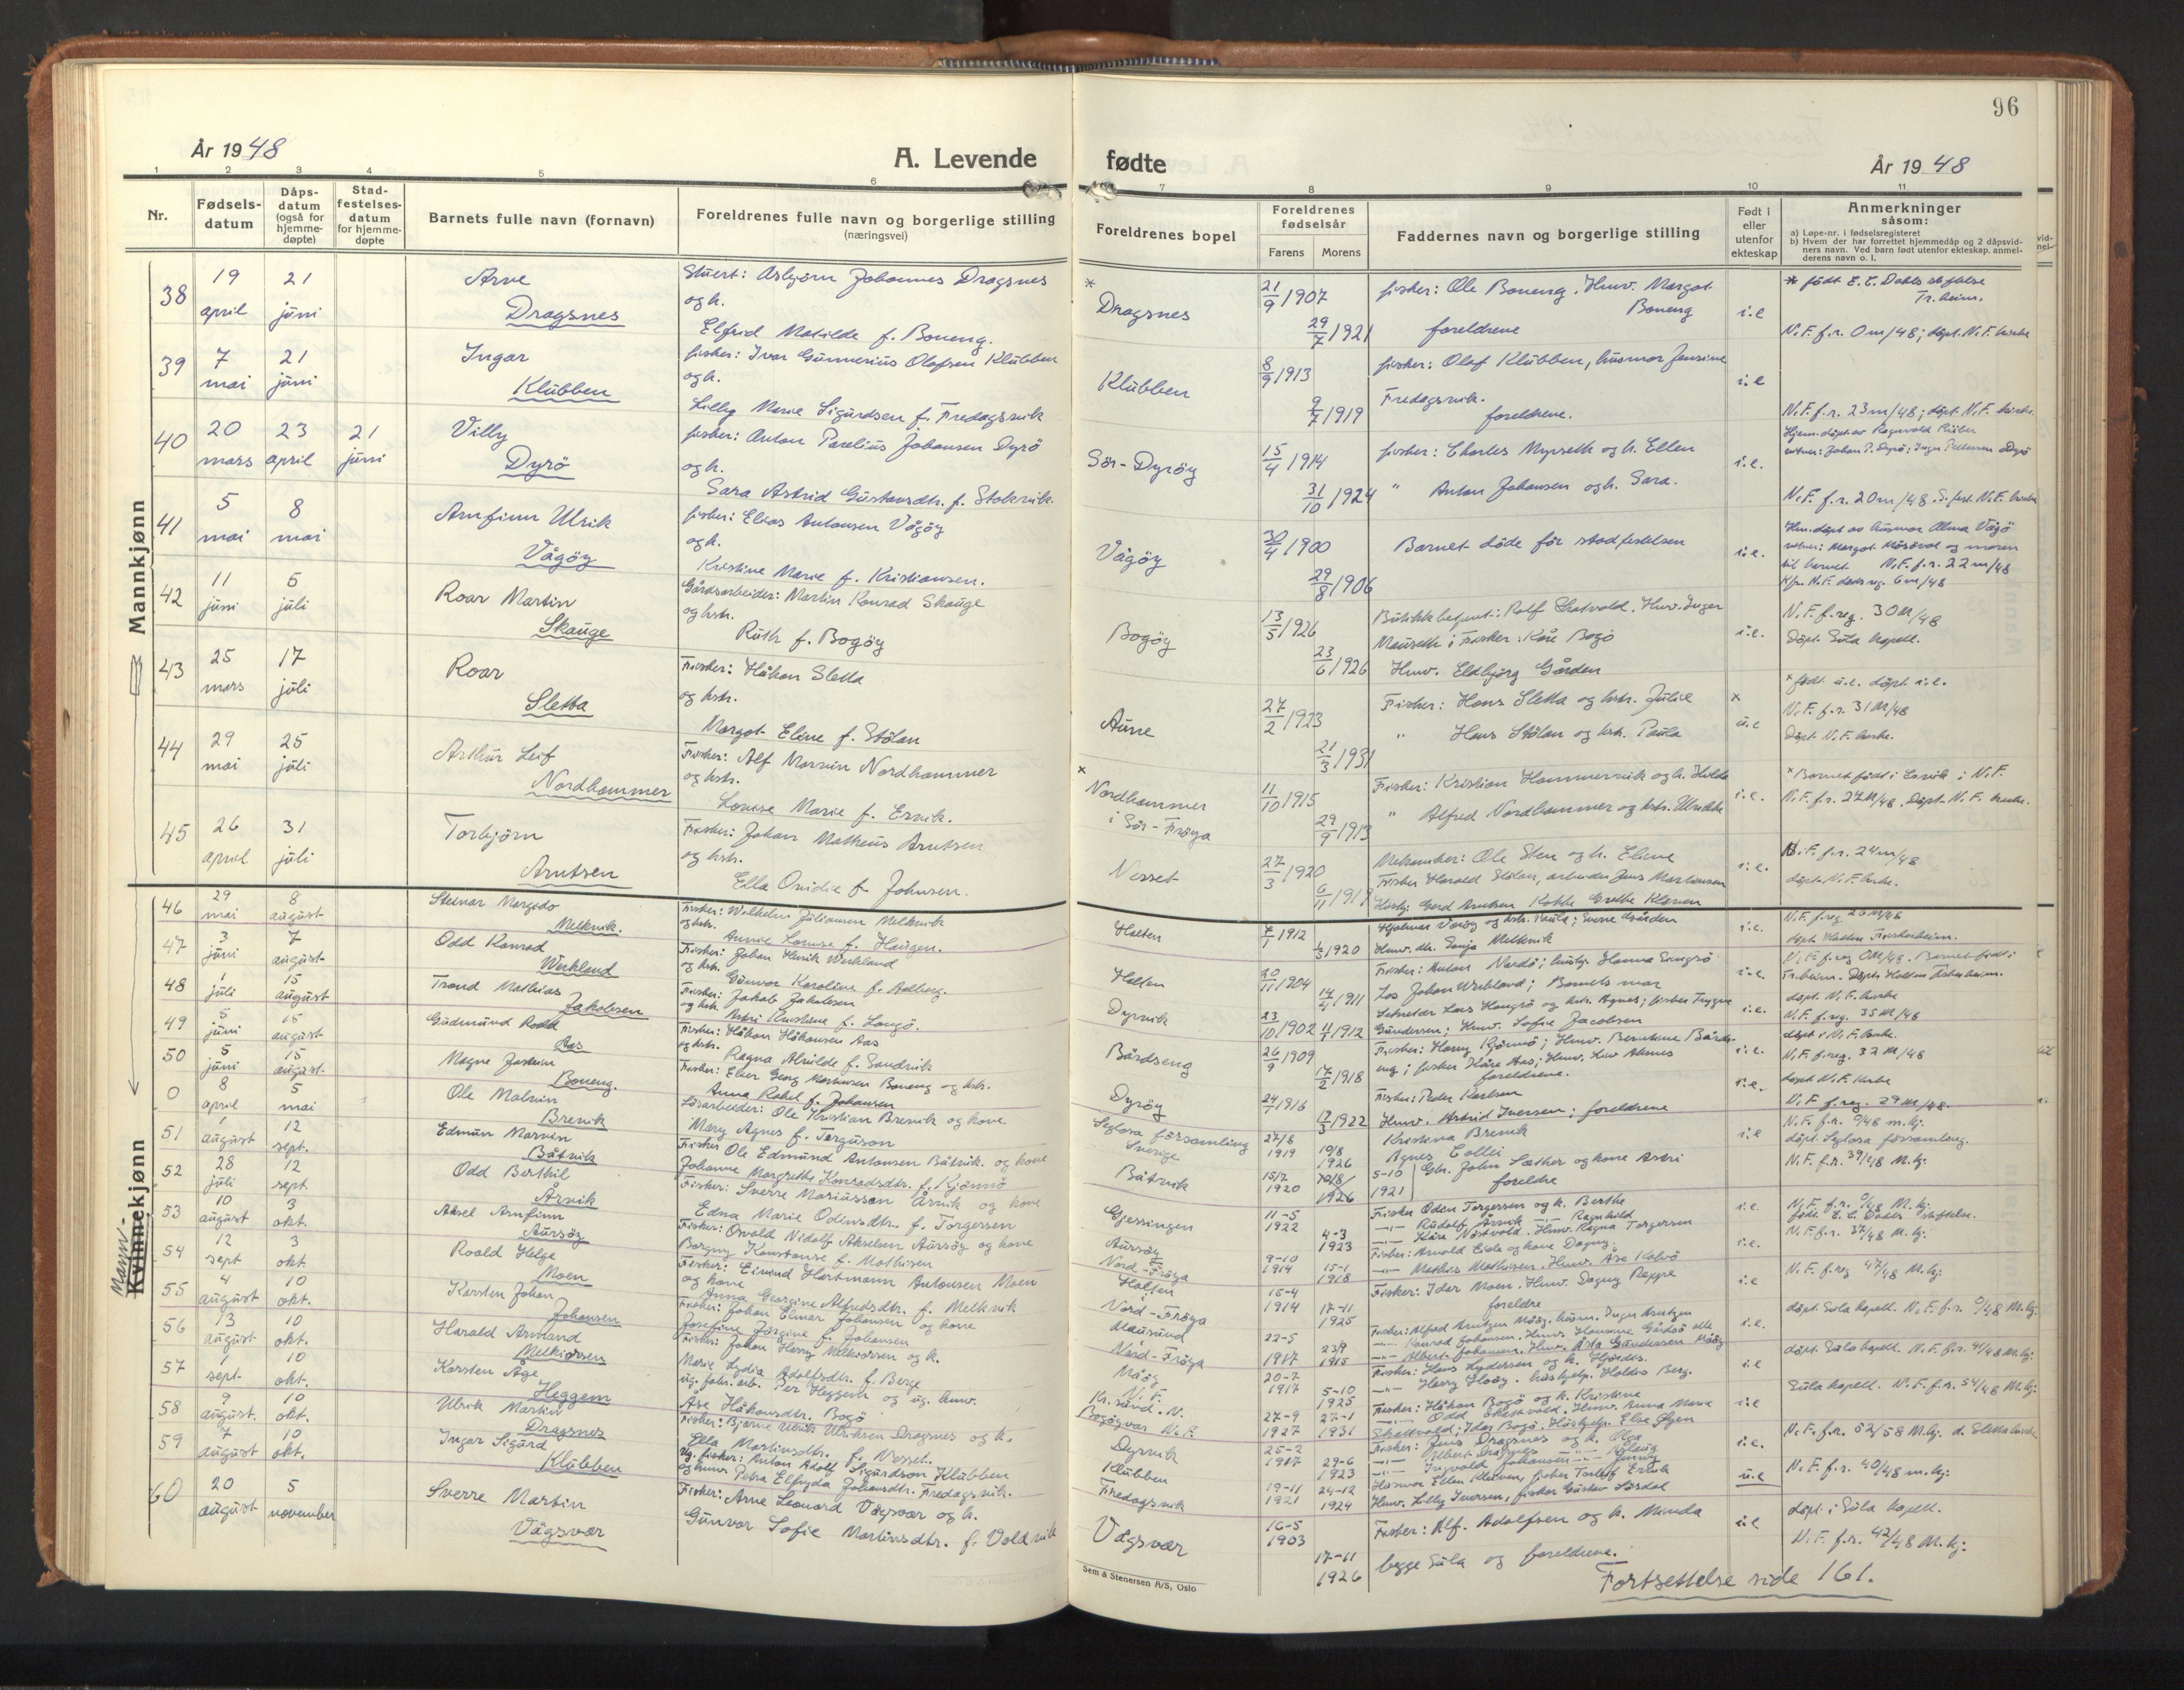 96
År 1948
A. Levende
fødte
År 1948
1 2 3 4 5 6 7 8 9 10 11
Nr.
Fødsels-datum
Dåps-datum (også for hjemme-døpte)
Stad-festelses-datum for hjemme-døpte
Barnets fulle navn (fornavn)
Foreldrenes fulle navn og borgerlige stilling
(næringsvei)
Foreldrenes bopel
Foreldrenes fødselsår
Farens Morens
Faddernes navn og borgerlige stilling
Født i eller utenfor ekteskap
Anmerkninger
såsom:
a) Løpe-nr. i fødselsregisteret
b) Hvem der har forrettet hjemmedåp og 2 dåpsvid-
ners navn. Ved barn født utenfor ekteskap, anmel-
derens navn o. l.
Mannkjønn
38 19 april 21 juni Arne Dragsnes
Stuert: Asbjørn Johannes Dragsnes
og h.
Elfrid Matilde f. Boneng.
* Dragsnes 21/9 1907 29/7 1921
fisker: Ole Boneng. Hmv. Margot Boneng
foreldrene
i.e
* født E. C. Dahls stiftelse Tr.heim.
N.F. f.r. 0 m/48; døpt. N.F. kirke
39 7 mai 21 juni Ingar Klubben
fisker: Ivar Gunnerius Olafsen Klubben
og h.
Lilly Marie Sigurdsen f. Fredagsvik
Klubben 8/9 1913 9/7 1919
fisker: Olaf Klubben, husmor Jensine
Fredagsvik.
foreldrene.
i.e
N.F. f.r. 23 m/48; døpt. N.F. kirke.
40 20 mars 23 april 21 juni Villy Dyrø
fisker: Anton Paelius Johansen Dyrö
og h.
Sara Astrid Gustavsdtr. f. Stokvik
Sör-Dyröy 15/4 1914 31/10 1924
fisker: Charles Myrseth og h. Ellen
" Anton Johansen og h. Sara.
i.e.
Hjem.døpt av Ragnvald
vitner: Johan P. Dyrö; Inga Pettersen Dyrö
N.F. f.r. 20 m/48. S.fest. N.F. kirke
41 5 mai 8 mai Arnfinn Ulrik Vågöy
fisker: Elias Antonsen Vågöy
og h.
Kristine Marie f. Kristiansen.
Vågöy 30/4 1900 29/8 1906
Barnet döde för stadfestelsen
i.e.
Hm.döpt av husmor Alma Vågö
vitner: Margot Måsöval og moren
til barnet N.F. f.r. 22 m/48
N.F. döds reg. 6 m/48
42 11 juni 6 juli Roar Martin Skauge
Gårdsarbeider: Martin Konrad Skauge
og hstr.
Ruth f. Bogöy
Bogöy 13/5 1926 23/6 1926
Butikkbetjent: Rolf Skatvold. Hmv. Inger
Mauseth; Fisker: Kåre Bogö
Hmv. Eldbjörg Gården
i.e.
N.F. f.reg. 30 M/48
Döpt. Sula kapell.
43 25 mars 17 juli Roar Sletta
Fisker: Håkon Sletta
og hstr.
Margot Eline f. Stölan
Aune 27/2 1923 21/3 1931
Fisker: Hans Sletta og hstr. Julie
" Hans Stölan og hstr. Paula
x u.e
x født u.e. döpt i.e.
N.F. f.r. 31 M/48
Döpt. N.F. kirke.
44 29 mai 25 juli Arthur Leif Nordhammer
Fisker: Alf Marvin Nordhammer
og hstr.
Lovise Marie f. Ervik.
x Nordhammer i Sör-Fröya 11/10 1915 29/9 1913
Fisker: Kristian Hammervik og h. Hilda
" Alfred Nordhammer og hstr. Ulrikke
i.e.
x Barnet født i Ervik i N.F.
N.F. f.r. 27 M/48. Döpt. N.F. kirke.
45 26 april 31 juli Torbjörn Arntsen
Fisker: Johan Matheus Arntsen
og hstr.
Ella Ovidie f. Johnsen.
Nesset 27/3 1920 6/11 1919
Mekaniker: Ole Sten og h. Eline
Fisker Harald Stölan, arbeider Jens Martinsen
Gerd Arntsen Grethe Klaven
i.e.
N.F. f.r. 24 m/48
döpt. N.F. kirke.
Mann-Kvinnekjønn
46 29 mai 8 august Steinar Margido Melkvik.
Fisker: Wilhelm Juliansen Melkvik
og hstr.
Annie Lovise f. Haugen.
Halten 7/1 1912 1920
Hjalmar Varöy og hstr. Paula; Sverre Gården
Hmv. Sonja Melkvik
i.e.
N.F. f.reg 25 M/48
döpt Halten Fiskarheim.
47 3 juni 7 august Odd Konrad Werkland
Fisker: Johan Henrik Werkland
og hstr.
Gunvor Karoline f. Aalberg.
Halten 20/11 1904 14/4 1911
Fisker: Anton Nordö; Hanna Sengsö
Johan Werkland; Barnets mor
i.e.
N.F. f.reg 0 M/48. Barnet født i
Tr.heim. Döpt Halten fiskerheim.
48 1 juli 15 august Trond Mathias Jakobsen
Fisker: Jakob Jakobsen
og hstr.
Astri Kristine f. Langö.
Dyrvik 23/10 1902 4/1 1912
Lars og hstr. Agnes; fisker Trygve
Gundersen; Hmv. Sofie Jacobsen
i.e.
döpt. N.F. kirke
N.F. f.reg. 35 M/48
49 5 juni 15 august Gudmund Aas
Fisker: Håkon Håkonsen Aas
og hstr.
Ragna Alvilde f. Sandvik
Bårdseng 26/9 1909 17/2 1918
Fisker: Harry Kjönnö; Hmv. Berntine Bårds-
eng; fisker Kåre Aas; Hmv. Liv
foreldrene.
i.e.
döpt i N.F. kirke.
N.F. f.reg. 32 M/48
50 5 juni 15 august Magne Joakim Boneng.
Fisker: Elier Georg Martinsen Boneng og hstr.
Anna Rakel f. Johansen
Dyröy 24/1 1916 17/3 1922
Fisker: Peder Karlsen
Hmv. Astrid Iversen; foreldrene
i.e.
döpt N.F. kirke
N.F. f.reg. 29 M/48.
0 8 april 5 mai Ole Malvin Brevik
Lösarbeider: Ole Kristian Brevik og kone
Mary Agnes f. Ferguson
Seglora församling Sverige 27/8 1919 19/8 1926
Kristina Brevik
Agnes
i.e
N.F. f.r. 0/48 m.kj.
döpt. Seglora församling.
51 1 august 12 sept. Edmun Marvin Båtvik
Fisker Ole Edmund Antonsen Båtvik. og kone
Johanne Margrethe Konradsdtr. f. Kjönnö
Båtvik 15/7 1920 5-10 1921
Gbr. John Sæther og kone Astri
foreldre
N.F. f.r. 39/48 M.kj.
52 28 juli 12 sept. Odd Berthil Årvik
Fisker: Sverre Mariusson Årvik og kone
Edna Marie Odinsdtr. f. Torgersen
Gjessingen 11-5 1922 4-3 1923
Fisker Oden Torgersen og k. Berthe
-"- Rudolf Årvik -"- Ragnhild
-"- Kåre Nöstvold. Hmv. Ragna Torgersen
i.e.
N.F. f.r. 0/48 M.kj.
født E. C. Dahls stiftelse.
53 10 august 3 okt. Aksel Arnfinn Aursöy
Fisker: Osvald Nidolf Akselsen Aursöy og kone
Borgny Konstanse f. Mathisen
Aursöy Nord-Fröya 9-10 1914 15-1 1918
Fisker: Arnold Eide og kone Dagny.
-"- Mathis Mathisen. Hmv. Åse Kalvö
i.e.
N.F. f.r. 37/48 M.kj.
54 12 sept 3 okt Roald Helge Moen
Fisker: Eivind Hartmann Antonsen Moen
og kone
Anna Georgine Alfredsdtr. f. Melkvik
Halten Nord-Fröya 15-4 1914 17-11 1925
Fisker: Idar Moen. Hmv. Dagny Reppe
foreldre
i.e
N.F. f.reg 47/48 M.kj.
55 4 august 10 okt. Karsten Johan Johansen
Fisker: Johan Elmar Johansen og kone
Josefine Jörgine f. Johansen
Mausund Nord-Fröya 22-5 1917 23/9 1915
Fisker: Alfred Arntzen Måöy. husm. Inga Arntzen
-"- Konrad Johansen. Hmv. Gårdsö alle
-"- Albert Johansen. Hmv. Asta Gundersen Måöy
i.e.
döpt. Sula kapell. N.F. f.r. 0/48 M.kj.
56 13 august 10 okt. Harald Armand Melkiorsen
Fisker: Johan Harry Melkiorsen og k.
Marie Lydia Adolfsdtr. f. Berge
Måöy N.F. 20-7 1917 5-10 1925
Fisker: Hans Lydersen og k. Hjördis.
-"- Harry Måöy. Haldis Berg.
i.e
döpt. Sula kapell. N.F. f.r. 41/48 M.kj.
57 1 sept. 10 okt. Karsten Åge Heggem
ug. fabr. arb. Per Heggem og ug. hmv.
Åse Håkonsdtr. Bogö
Kr.sund. N. Bogövær N.F. 27-9 1927 27-1 1931
Fisker: Håkon Bogö og k. Kristine
-"- Odd Skatvold. Hmv. Anna Maria
Skattvold; Idar Bogö. Else Öyen
i.e
Sula kapell. N.F. f.r. 54/48 M.kj.
58 9 august. 10 okt. Ulrik Martin Dragsnes
Fisker: Bjarne Ulrik Ulriksen Dragsnes og k.
Ella Martinsdtr. f. Nesset.
Dyrvik 25-2 1917 29-6 1923
Fisker: Jens Dragsnes og k. Olga
-"- Albert Dragsnes -"- Aslaug
-"- Ingvald Johansen -"- Jenny
i.e.
N.F. f.r. 52/58 M.kj. d. Sletta kirke.
59 7 august 10 okt. Ingar Sigurd Klubben
Ug. fisker: Anton Adolf Sigurdson Klubben
og hmv. Petra Elfryda Johansdtr. Fredagsvik.
Klubben Fredagsvik 19-11 1921 24-12 1924
Husmor Ellen Klaven, fisker Torleif Ervik
Hmv. Lilly Iversen, fisker Gustav
u.e
N.F. f.r. 40/48 m.kj.
60 20 august 5 november Sverre Martin Vågsvær
Fisker: Arne Leonard Vågsvær og h.
Gunvor Sofie Martinsdtr. f. Valdvik
Vågsvær 16-5 1903 17-11 1926
Fisker: Alf. Adolfsen og k. Minda
begge Sula og foreldrene.
i.e
döpt i Sula kapell.
N.F. f.r. 42/48 M.kj.
Fortsettelse side 161.
Sem & Stenersen A/S, Oslo